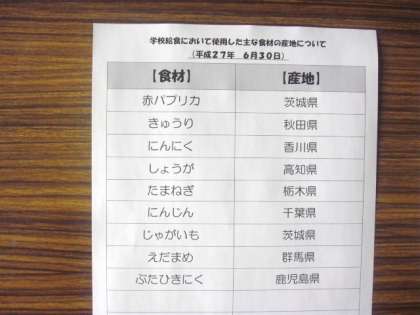 学校給食において使用した主な食材の産地について
(平成27年 6月30日)
【食材】 【産地】
赤パプリカ 茨城県
きゅうり 秋田県
にんにく 香川県
しょうが 高知県
たまねぎ 栃木県
にんじん 千葉県
じゃがいも 茨城県
えだまめ 群馬県
ぶたひきにく 鹿児島県